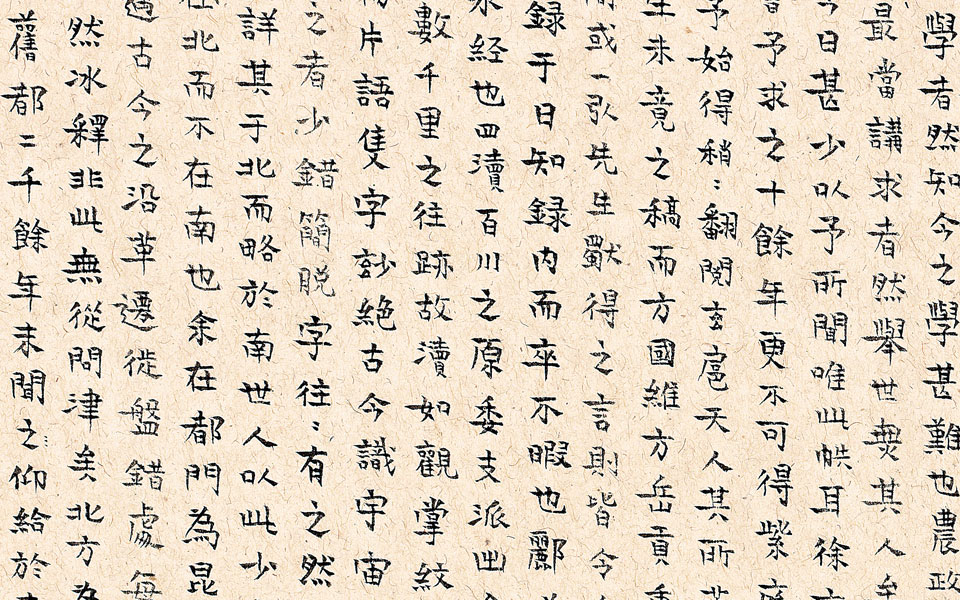 學者然知今之學甚難也農政
最當講求者然舉世無其人
今日甚少以予所聞唯此帙耳徐
予求之十餘年更不可得紫
予始得稍〻翻閱玄扈天人其所
生未竟之稿而方國維方岳貢
或一引先生獻得之言則皆今
録于日知録內而卒不暇也酈
経也四瀆百川之原委支派出
數千里之往跡故瀆如觀掌紋
片語隻字玅絕古今識宇宙
之者少錯簡脫字往〻有之然
詳其于北而略於南世人以此少
北而不在南也余在都門為昆
古今之沿革遷徙盤錯處每
然冰釋非此無從問津矣北方為
舊都二千餘年未聞之仰給於